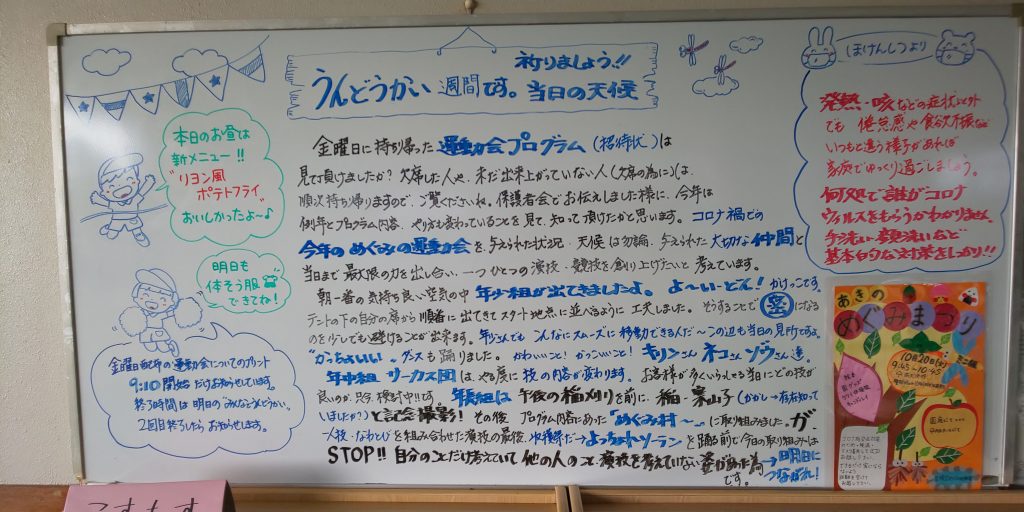 祈りましょう!!
うんどうかい 週間です。当日の天候
本日のお昼は
新メニュー!!
"リヨン風
ポテトフライ"
おいしかったよ~♪
明日も
体そう服
できてね!
金曜日配布の運動会についてのプリント
9:10開始だけお知らせしています。
終了時間は明日の"みんなとうんどうかい"
2回目終了したらお知らせします。
金曜日に持ち帰った運動会プログラム(招待状)は
見て頂けましたか?欠席した人や、未だ出来上がっていない人(欠席の為に)は、
順次持ち帰りますので、ご覧くださいね。保護者会でお伝えしました様に、今年は
例年とプログラム内容、やり方も変わっていることを見て、知って頂けたかと思います。コロナ禍での
今年のめぐみの運動会を、与えられた状況・天候は勿論、与えられた大切な仲間と
当日まで最大限の力を出し合い、一つひとつの演技・競技を創り上げたいと考えています。
朝一番の気持ち良い空気の中年少組が出てきましたよ。よ~いどん!かけっこです。
テントの下の自分の席から順番に出てきてスタート地点に並べるように工夫しました。そうすることで密になる
のを少しでも避けることが出来ます。年少さんでもこんなにスムーズに移動できるんだ~この辺も当日の見所ですよ。
"かっちょいい"ダンスも踊りました。かわいいこと!かっこいいこと!キリンさんネコさんゾウさん達。
年中組サーカス団は、やる度に技の内容が変わります。お客様が多くいらっしゃる当日にどの技が
良いのか、只今、検討中!!です。年長組は午後の稲刈りを前に、稲・案山子(かかし→存在知って
いましたか?)と記念撮影!その後、プログラム内容にあった「めぐみ村~」に取り組みました。ガ
STOP!!自分のことだけ考えていて他の人のこと、演技を考えていない姿があった為
です。
→明日に
つながれ!
ほけんしつより
発熱・咳などの症状以外
でも倦怠感や食欲不振など
いつもと違う様子があれば
家庭でゆっくり過ごしましょう。
何処で誰がコロナ
ウィルスをもらうかわかりません。
手洗い・顔洗いなど
基本的な対策をしっかり!!
あきの
めぐみまつり
10月20日(火)
9:45~10:45